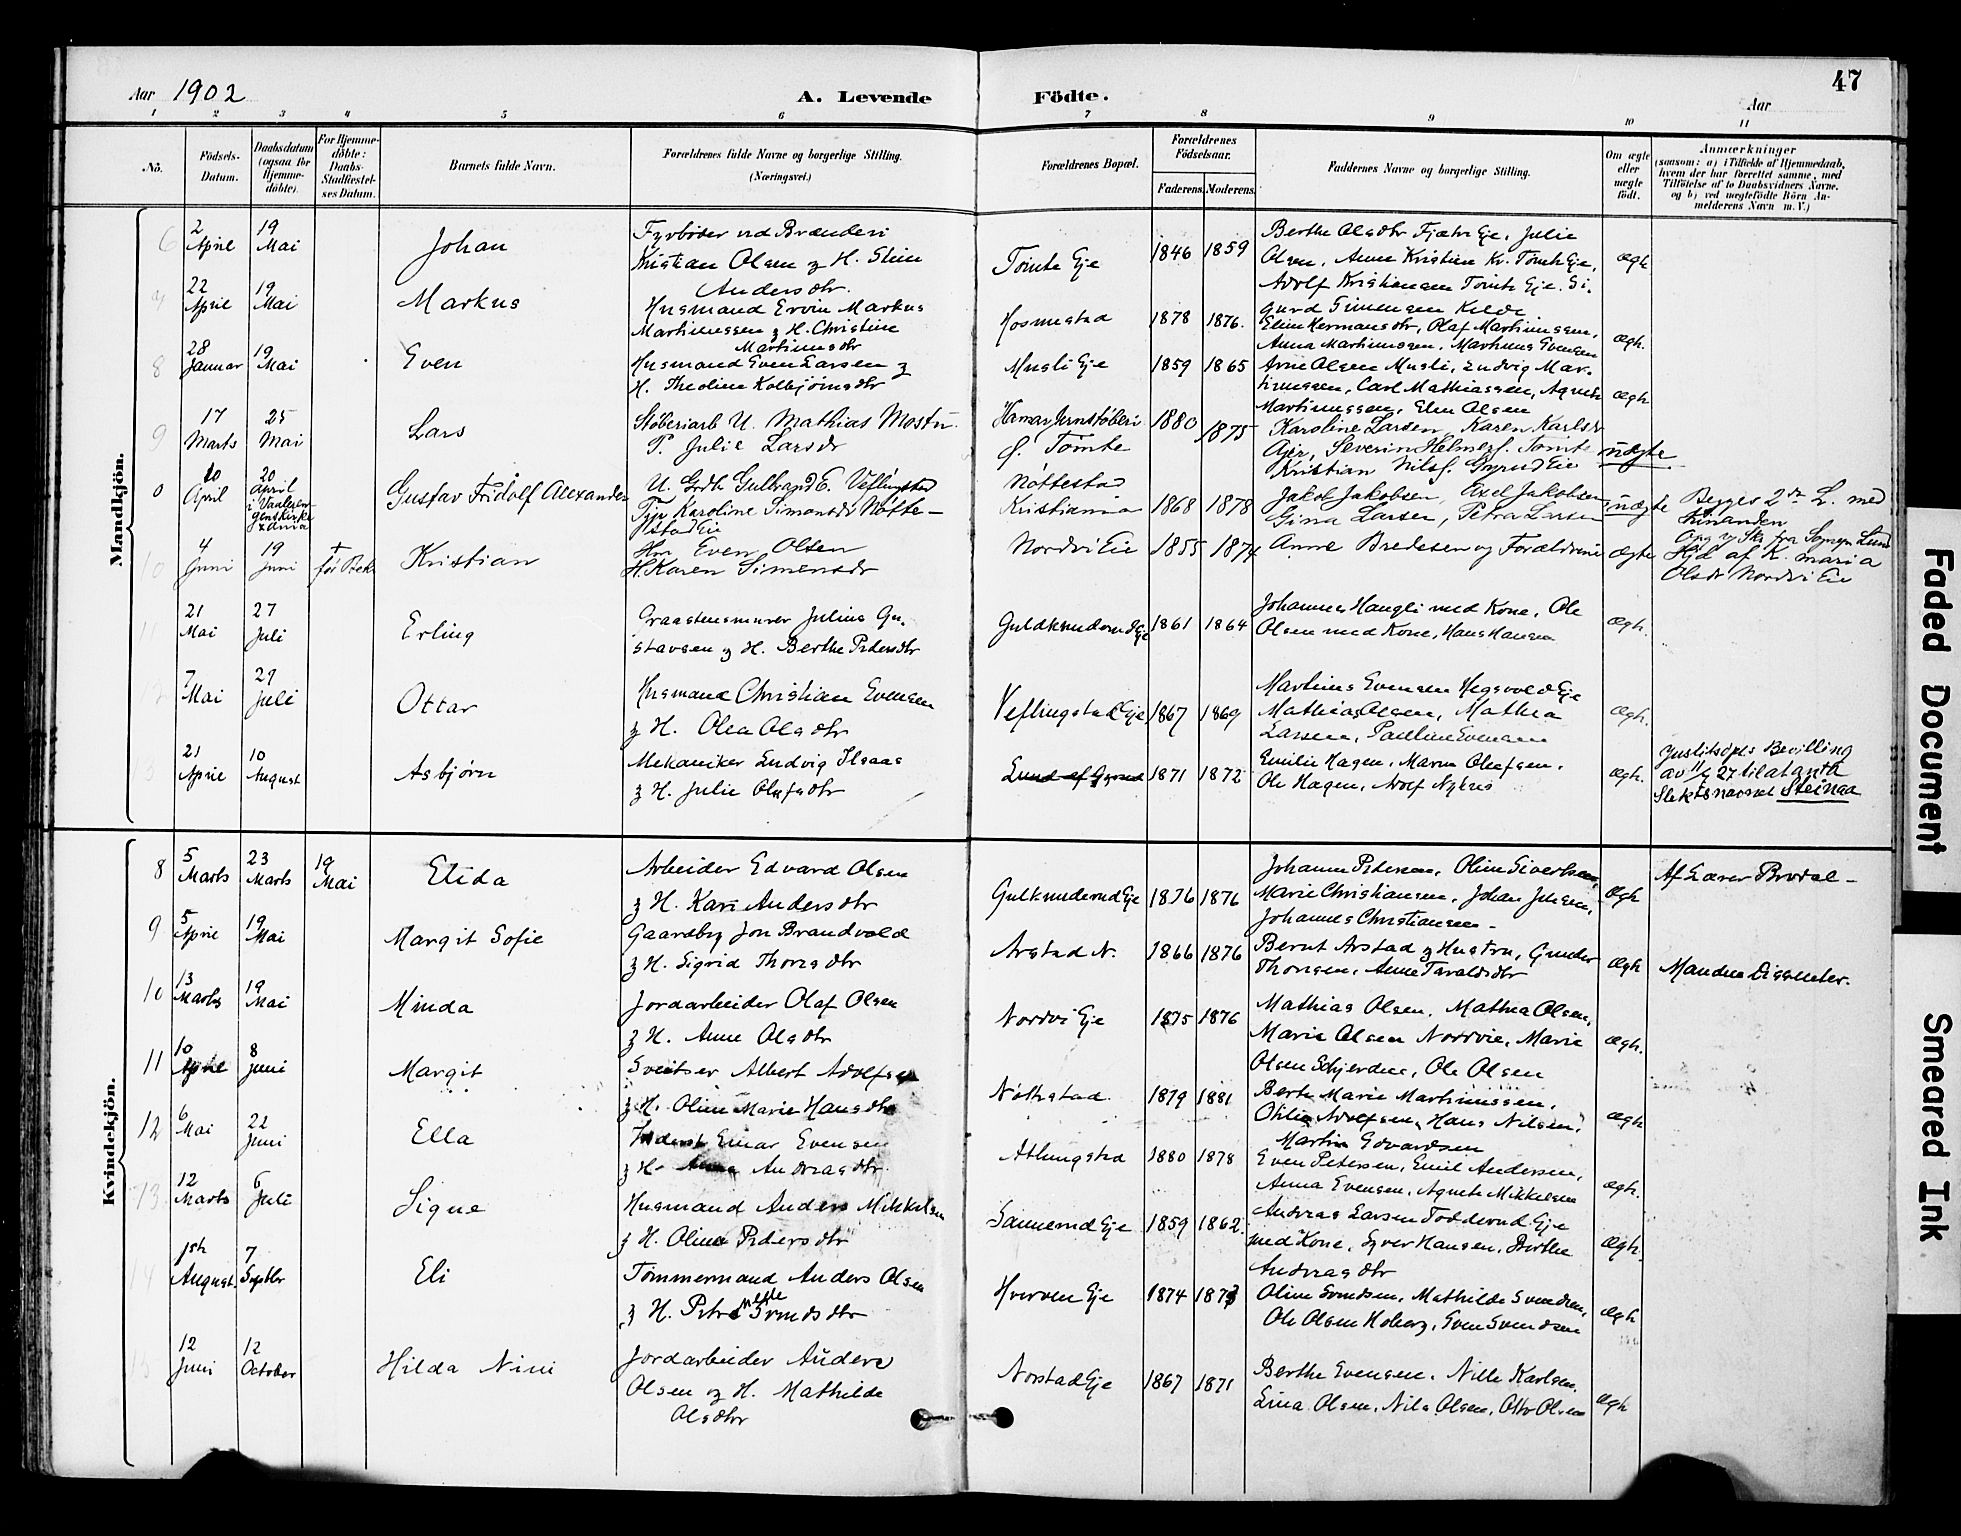 Aar 1902
A. Levende Födte.
47
Aar
1 2 3 4 5 6 7 8 9 10 11
No.
Födsels-Datum.
Daabsdatum (ogsaa for Hjemme-döbte).
For Hjemme-döbte: Daabs-Stadfæstel-ses Datum.
Barnets fulde Navn.
Forældrenes fulde Navne og borgerlige Stilling.
(Næringsvei.)
Forældrenes Bopæl.
Forældrenes Födselsaar.
Faderens. Moderens.
Faddernes Navne og borgerlige Stilling.
Om ægte eller uægte födt.
Anmærkninger
(saasom: a) i Tilfælde af Hjemmedaab,
hvem der har forrettet samme, med
Tilföielse af to Daabsvidners Navne.
og b) ved uægtefödte Börn An-
melderens Navn m. V.)
Mandkjön.
6 2 April 19 Mai Johan
Fyrbøder ved Brænderi
Kristian Olsen & H. Stine
Andersdtr.
Tømte Eje 1846 1859
Berthe Olsdtr Eje, Julie
Olsen, Anne Kristine Kr. Tømte Eje,
Adolf Kristiansen Tømte Eje. Si-
gurd Simensen
ægte
22 April 19 Mai Markus
Husmand Ervin Markus
Martinussen & H. Christine
Martinusdtr
Hosmestad 1878 1876.
Hermansdtr, Olaf Martinussen,
Anna Martinussen, Markus Evensen
ægte.
8 28 Januar 19 Mai Even
Husmand Even Larsen &
H. Theoline Kolbjørnsdtr
Musli Eje 1859 1865
Arne Olsen Musli, Ludvig Mar-
tinussen, Carl Mathiassen, Agnete
Martinussen, Elen Olsen
ægte
9 17 Marts 25 Mai Lars
Støberiarb U. Mathias Mostu
P. Julie Larsdr
Hamar Jernstøberi
f. Tømte
1880 1875
Karoline Larsen, Karen Karlsdr
Ajer, Severin Helmers. Tomte
Kristian Nilsf. Gyrud Eie
uægte
0 10 April 20 April i Vaaleren-genskirke Xania
Gustav Fridolf Alexander
U. Grdb Gullbrand E. Veflingstad
Tj. Karoline Simonsdr Nøtte-
stad Eie
Nøttestad
Kristiania 1868 1878
Jakob Jakobsen, Axel Jakobsen
Gina Larsen, Petra Larsen
uægte
Begges 2det L. med
hinanden
10 4 Juni 19 Juni † før Bek Kristian
Hm Even Olsen
H. Karen Simensdr
Nordvi Eie 1855 1874
Anne Bredesen og Forældrene
ægte
Hjd af K. Maria
Olsdr Nordvi Eie
11 21 Mai 27 Juli Erling
Graastensmurer Julius Gu-
stavsen & H. Berthe Pedersdtr
Guldknuderud Eje 1861 1864
Johannes Haugli med Kone, Ole
Olsen med Kone, Hans Hansen
ægte.
12 7 Mai 29 Juli Ottar
Husmand Christian Evensen
& H. Olea Olsdtr
Veflingstad Eje 1867 1869
Martinus Evensen Hegsvold Eje
Mathias Olsen, Mathea
Larsen, Pauline Evensen
ægte.
21 April 10 August Asbjørn
Mekaniker Ludvig Isaas
& H. Julie Olafsdtr
Lund af Gyrud 1871 1872
Emilie Hagen, Maren Olafsen,
Ole Hagen, Adolf Nykris
ægte.
Justitsdpts Bevilling
av 11/6 27 til at anta
Slektsnavnet Steinaa
Kvindekjön.
8 5 Marts 23 Marts 19 Mai Elida
Arbeider Edvard Olsen
& H. Kari Andersdtr
Gulknuderud Eje 1876 1876
Johanne Petersen, Oline Sivertsen,
Marie Christiansen, Johan Jensen,
Johannes Christiansen.
ægte
Af Lærer Brodal -
9 5 April 19 Mai Margit Sofie
Gaardbrg Jon Brandvold
& H. Sigrid Thorsdtr
Arstad N. 1866 1876
Bernt Arstad & Hustru, Gunder
Thorsen, Anne Taraldsdtr
ægte
Manden Dissenter.
10 13 Marts 19 Mai Minda
Jordarbeider Olaf Olsen
& H. Anne Olsdtr
Nordvi Eje 1875 1876
Mathias Olsen, Mathea Olsen,
Marie Olsen Nordvie, Marie
Olsen Schjerden, Ole Olsen
ægte.
11 10 April 8 Juni Margit
Sveitser Albert Adolfsen
& H. Oline Marie Hansdtr
Nøttestad 1879 1881
Berte Marie Martinussen,
Othlia Adolfsen, Hans Nilsen,
Martin Edvardsen
ægte
12 6 Mai 22 Juni Ella
Einar Evensen
& H. Anna Andreasdtr
Atlungstad 1880 1878
Even Petersen, Emil Andersen,
Anna Evensen, Agnete Mikkelsen
ægte.
13 12 Marts 6 Juli Signe
Husmand Anders Mikkelsen
& H. Oline Pedersdtr
Sannerud Eje 1859 1862
Andreas Larsen Todderud Eje
med Kone, Syver Hansen, Berthe
Andreasdtr
ægte.
14 1ste August 7 Septbr Eli
Tømmermand Anders Olsen
& H. Petrenelle Svendsdtr
Hverven Eje 1874 1873
Oline Svendsen, Mathilde Svendsen,
Ole Olsen Hoberg, Sven Svendsen
ægte
12 Juni 12 October Hilda Nini
Jordarbeider Anders
Olsen og H. Mathilde
Olsdtr
Norstad Eje 1867 1871
Berthe Evensen, Nille Karlsen,
Lina Olsen, Nils Olsen, Otto Olsen
ægte
Faded Document
Smeared Ink